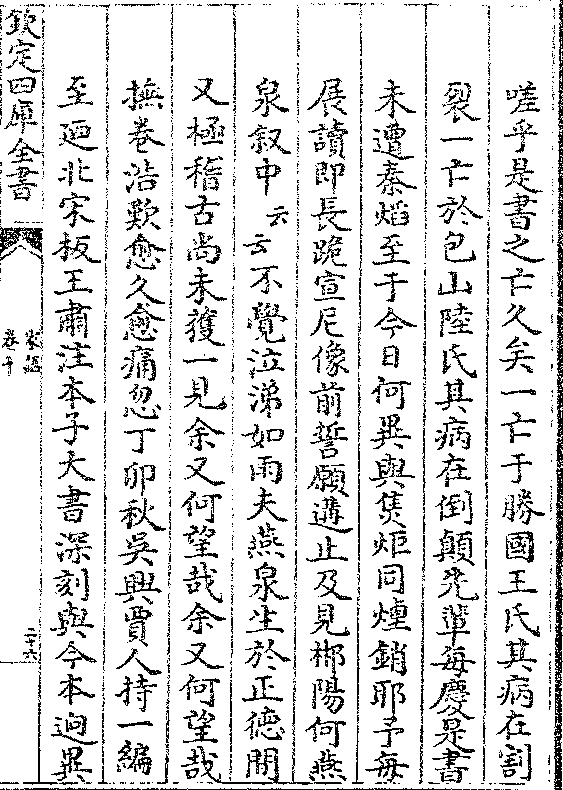 嗟乎是書之亡久矣一亡于勝國王氏其病在割
裂一亡於包山陸氏其病在倒顛先輩每慶是書
未遭秦焰至于今日何異與焦炬同煙銷耶予每
展讀即長跪宣尼像前誓願遘止及見郴陽何燕
泉叙中云云不覺泣涕如雨夫燕泉生於正德間
又極稽古尚未獲一見余又何望哉余又何望哉
撫卷浩歎愈久愈痛忽丁卯秋吳興賈人持一編
至廼北宋板王肅注本子大書深刻與今本逈異
欽定四庫全書
家語
卷十
二十六